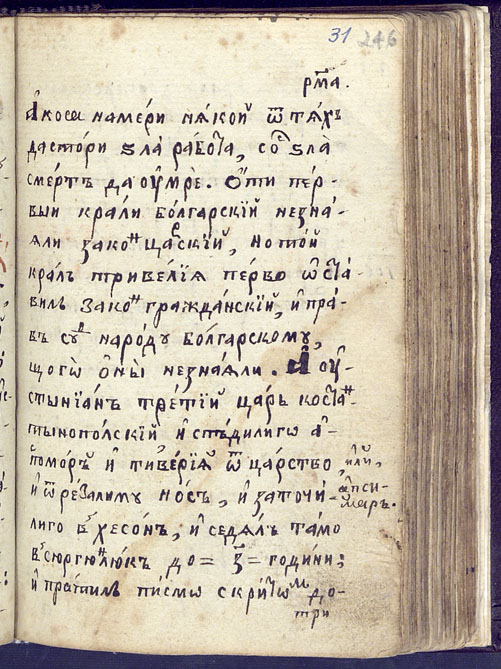 31 246
рм҃а.
А҆косѧ намери нѧкой ѿ тѧхъ
дастори ѕла работа, со ѕла̀
смертъ да оу҆мре. Ѻти пер-
вый крали болгарскїй незна-
ѧли закон щаскїй, но той
краль тривелїѧ перво ѡ҆ста-
вилъ законъ гражданскїй, и҆ пра-
въ суд народу болгарскому,
щогѡ ѻны̀ незнаѧли. А҆ оу҆-
стынїанъ третїй царь костан-
тынополскїй и҆спѣдилигѡ а҆-
поморъ и҆ тиверїѧ ѿ царство, или,
и҆ ѿрезалиму носъ, и҆ заточи- апси-
лиго в хесонъ, и҆ седѧлъ тамо маръ.
в сюргюнлюкъ до = з҃ = години;
и҆ пратилъ писмо скритом до-
три